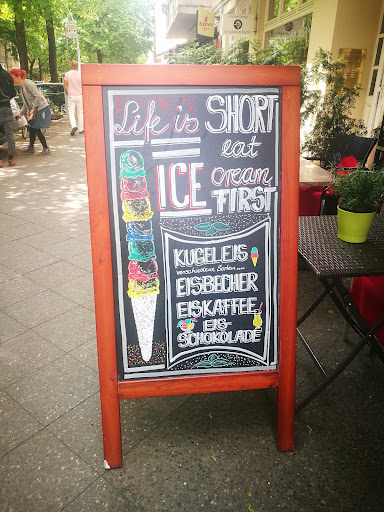 Life is SHORT
eat
ICE cream
FIRST
KUGELEIS
verschiedene Sorten....
EISBECHER
EISKAFFEE
EIS-
SCHOKOLADE